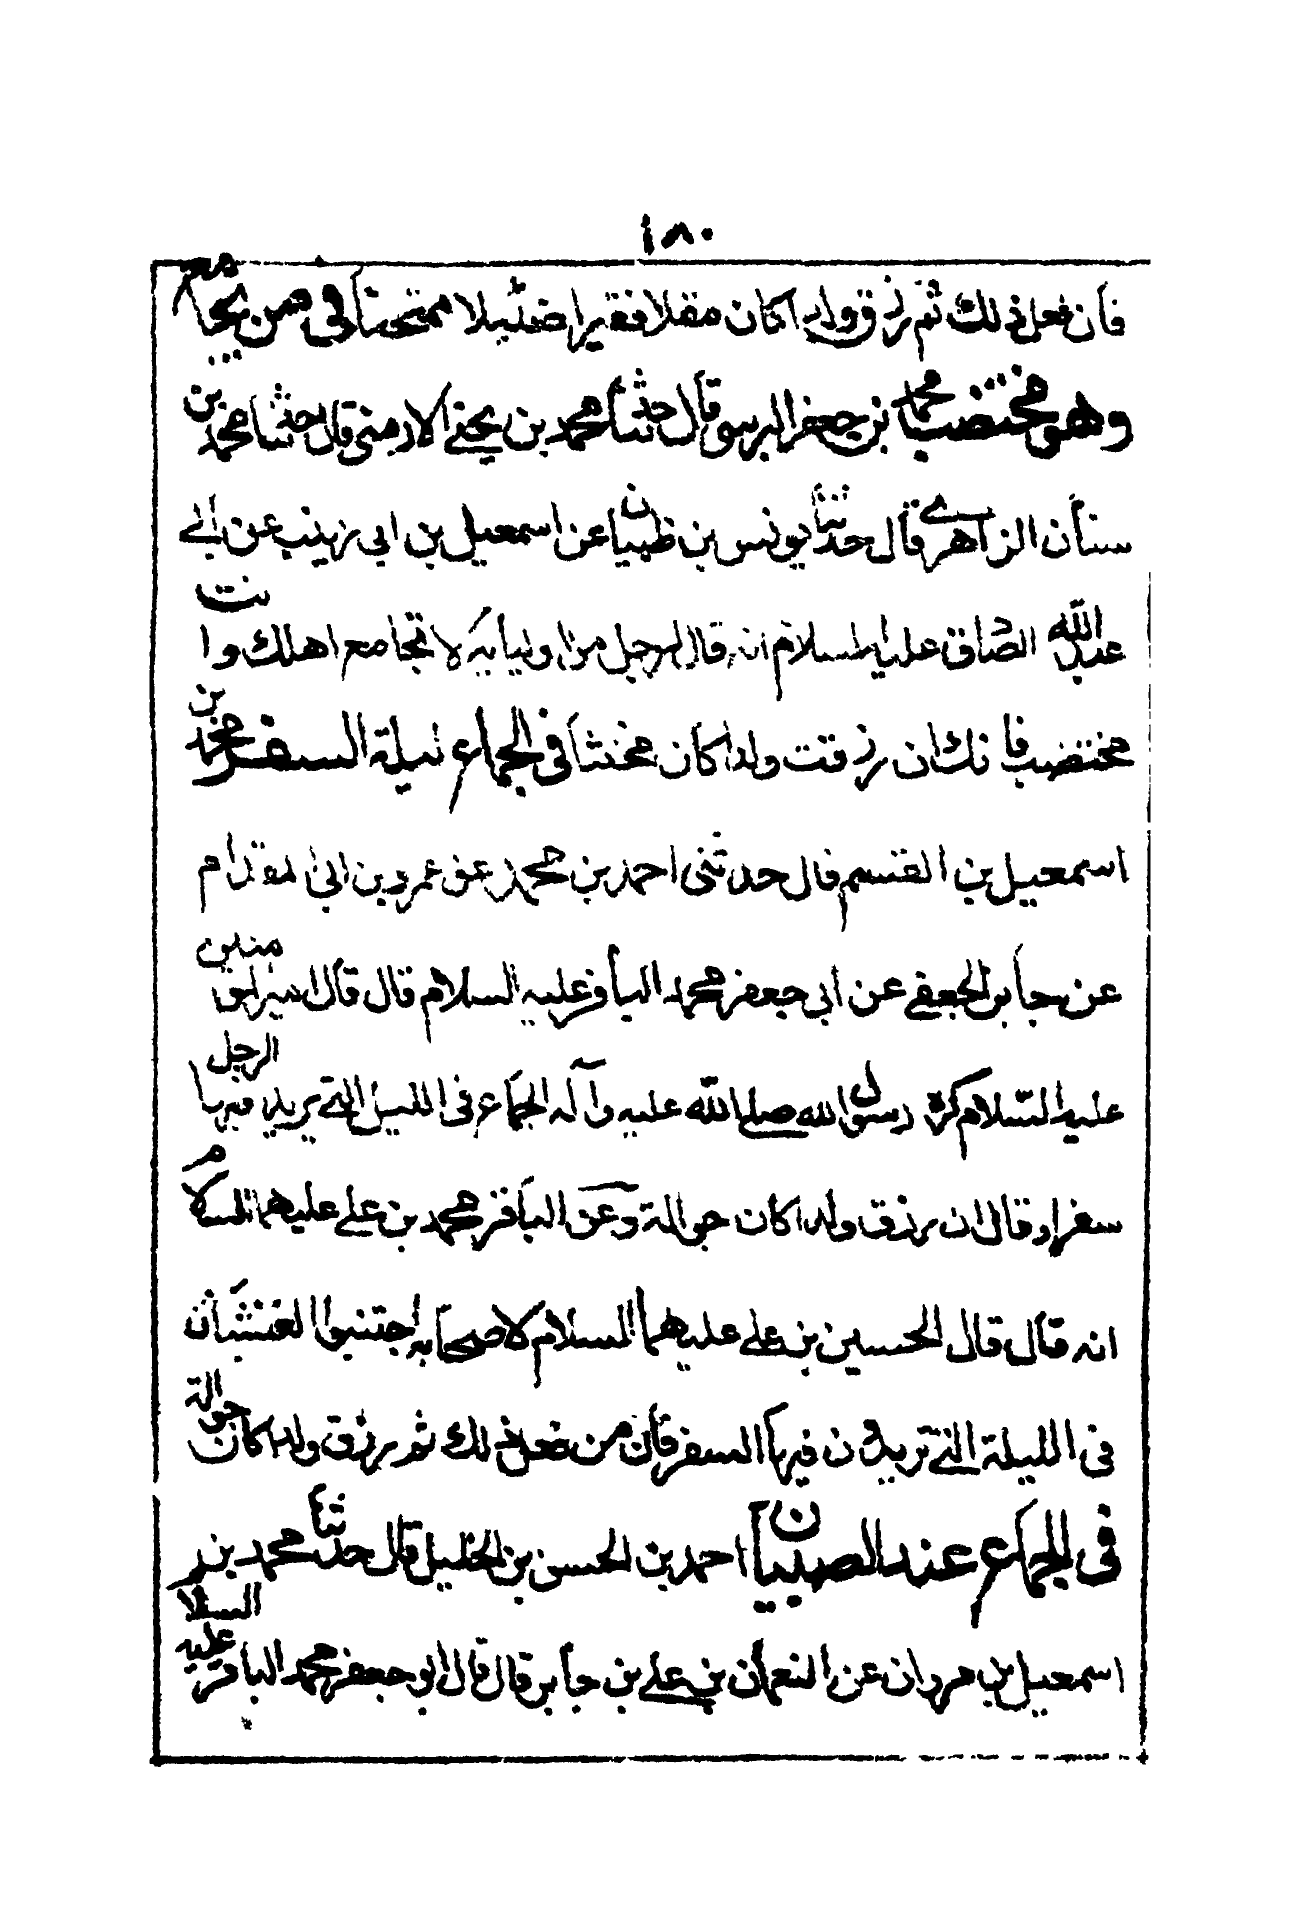 ١٨٠
فأن فعل ذلك ثم رزق ولد اكان مقلا فقيرا ضئيلا ممتحنا في من يجامع
وهو مختضب محمد بن جعفر البرسي قال حدثنا محمد بن يحيى الارمني قال حدثنا محمد بن
سنان الزاهري قال حدثنا يونس بن ظبيان عن اسمعيل بن ابي زينب عن ابي
عبد الله الصادق عليه السلام انه قال لرجل من اوليائه لا تجامع اهلك وانت
مختضب فانك ان رزقت ولدا كان مخنثا في الجماع ليلة السفر محمد بن
اسمعيل بن القسم قال حدثني احمد بن محمد عن عمرو بن ابي المقدام
عن جابر الجعفي عن ابي جعفر محمد الباقر عليه السلام قال قال امير المؤمنين
عليه السلام كره رسول الله صلى الله عليه وآله الجماع في الليل التي يريد فيها الرجل
سفرا وقال ان رزق ولدا كان حوالة وعن الباقر محمد بن علي عليهما السلام
انه قال قال الحسين بن علي عليهما السلام لاصحابه اجتنبوا الغشيان
في الليلة التي تريدون فيها السفر فأن من فعل ذلك ثم رزق ولد اكان حوالة
في الجماع عند الصبيان احمد بن الحسن بن الخليل قال حدثنا محمد بن
اسمعيل بن مروان عن النعمان بن علي بن جابر قال قال ابو جعفر محمد الباقر عليه السلا